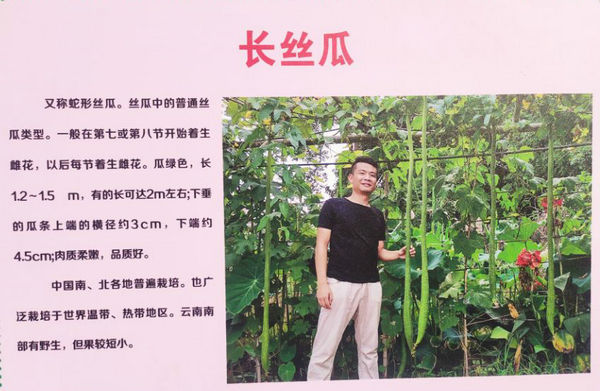 长丝瓜
又称蛇形丝瓜。丝瓜中的普通丝
瓜类型。一般在第七或第八节开始着生
雌花，以后每节着生雌花。瓜绿色，长
1.2~1.5 m，有的长可达2m左右;下垂
的瓜条上端的横径约3cm，下端约
4.5cm;肉质柔嫩，品质好。
中国南、北各地普遍栽培。也广
泛栽培于世界温带、热带地区。云南南
部有野生，但果较短小。